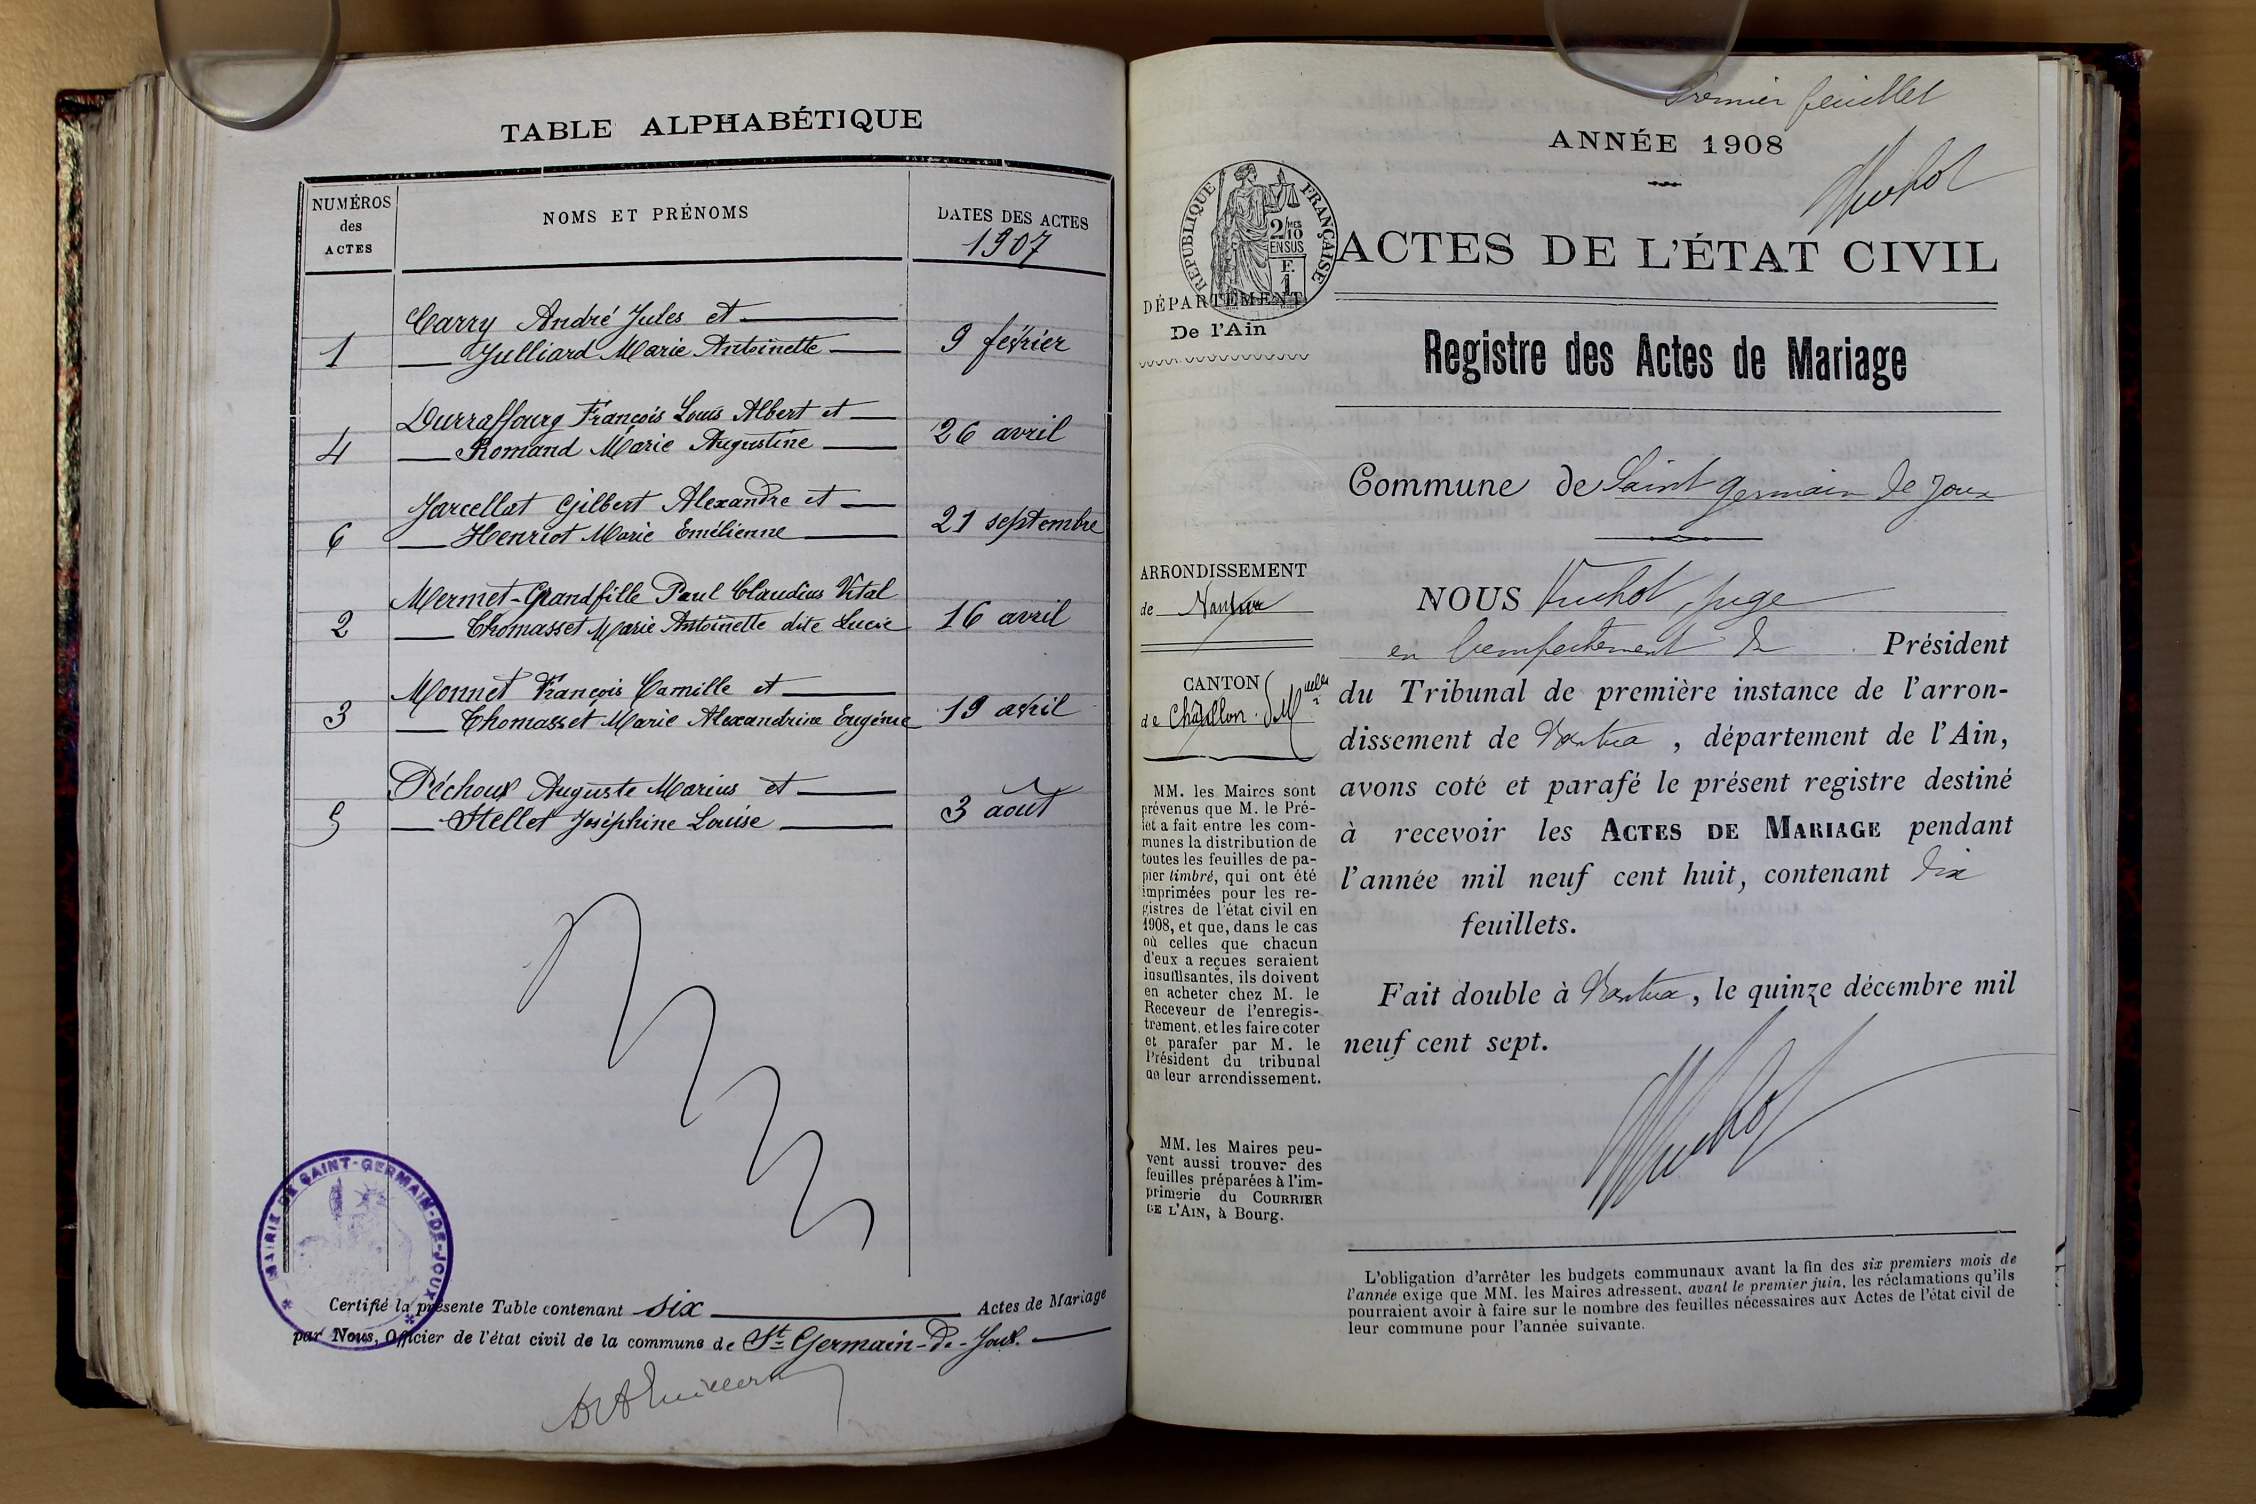 TABLE ALPHABÉTIQUE
NUMÉROS des ACTES
NOMS ET PRÉNOMS
DATES DES ACTES
1907
Carry André Jules et
1 Julliard Marie Antoinette 9 février
Durraffourg François Louis Albert et
4 Romand Marie Augustine 26 avril
Jarcellat Gilbert Alexandre et
6 Henriot Marie Emélienne 21 septembre
Mermet-Grandfille Paul Claudius Vital
2 Thomasset Marie Antoinette dite Lucie 16 avril
Monnet François Camille et
3 Thomasset Marie Alexandrine Eugénie 19 avril
Péchoux Auguste Marius et
5 Stellet Joséphine Louise 3 août
MAIRIE DE SAINT-GERMAIN-DE-JOUX
Certifié la présente Table contenant six Actes de Mariage
par Nous, Officier de l'état civil de la commune de St Germain-de-Joux.
Premier feuillet
ANNÉE 1908
Vuchot
RÉPUBLIQUE FRANÇAISE
2/10MES
EN SUS
F.
1
ACTES DE L'ÉTAT CIVIL
DÉPARTEMENT
De l'Ain
Registre des Actes de Mariage
Commune de Saint Germain de Joux
ARRONDISSEMENT
de Nantua
CANTON
de Châtillon de Mlle
MM. les Maires sont
prévenus que M. le Pré-
fet a fait entre les com-
munes la distribution de
toutes les feuilles de pa-
pier timbré, qui ont été
imprimées pour les re-
gistres de l'état civil en
1908, et que, dans le cas
où celles que chacun
d'eux a reçues seraient
insuffisantes, ils doivent
en acheter chez M. le
Receveur de l'enregis-
trement, et les faire coter
et parafer par M. le
Président du tribunal
de leur arrondissement.
MM. les Maires peu-
vent aussi trouver des
feuilles préparées à l'im-
primerie du COURRIER
DE L'AIN, à Bourg.
NOUS Vuchot, juge
en l'empêchement du Président
du Tribunal de première instance de l'arron-
dissement de Nantua, département de l'Ain,
avons coté et parafé le présent registre destiné
à recevoir les ACTES DE MARIAGE pendant
l'année mil neuf cent huit, contenant dix
feuillets.
Fait double à Nantua, le quinze décembre mil
neuf cent sept.
Vuchot
L'obligation d'arrêter les budgets communaux avant la fin des six premiers mois de
l'année exige que MM. les Maires adressent, avant le premier juin, les réclamations qu'ils
pourraient avoir à faire sur le nombre des feuilles nécessaires aux Actes de l'état civil de
leur commune pour l'année suivante.